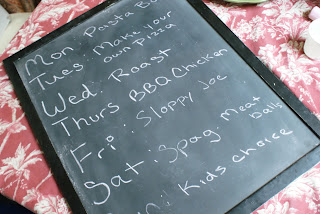 Mon Pasta
Tues Make Your
own Pizza
Wed: Roast
Thurs BBQ Chicken
Fri: Sloppy Joe
Sat: Spag Meat
balls
: Kids choice